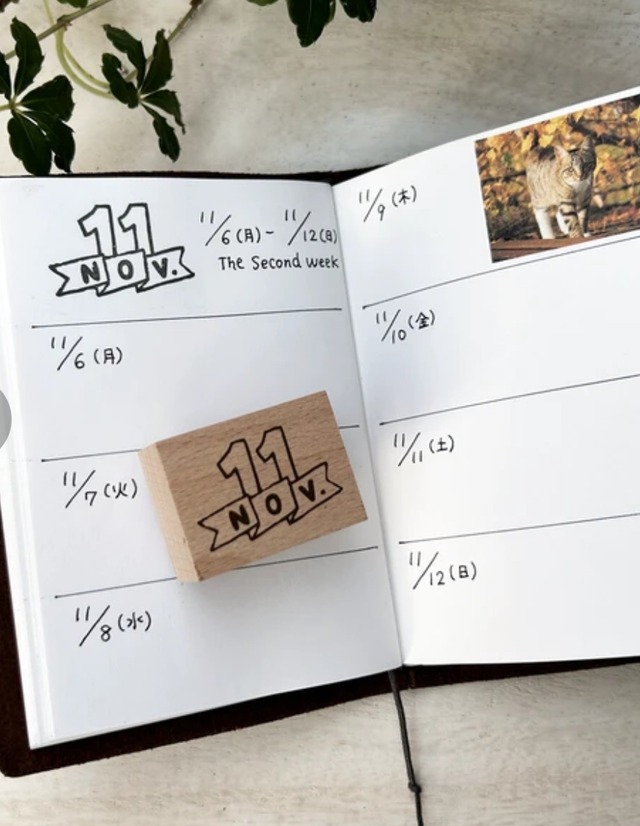 11
NOV.
11/6(月)- 11/12(日)
The Second week
11/6(月)
11/7(火)
11/8(水)
11
NOV.
11/9(木)
11/10(金)
11/11(土)
11/12(日)